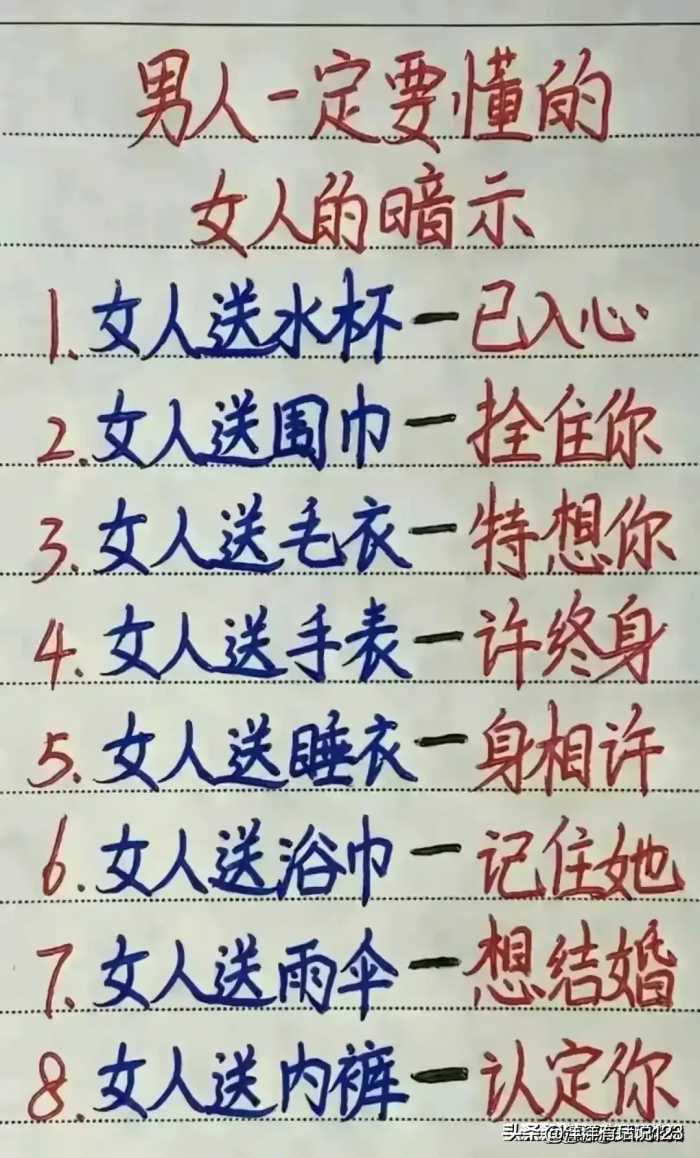 男人一定要懂的
女人的暗示
1.女人送水杯一已入心
2.女人送围巾一拴住你
3.女人送毛衣一特想你
4.女人送手表一许终身
5.女人送睡衣一身相许
6.女人送浴巾一记住她
7.女人送雨伞一想结婚
8.女人送内裤一认定你
头条@洋洋有话说123